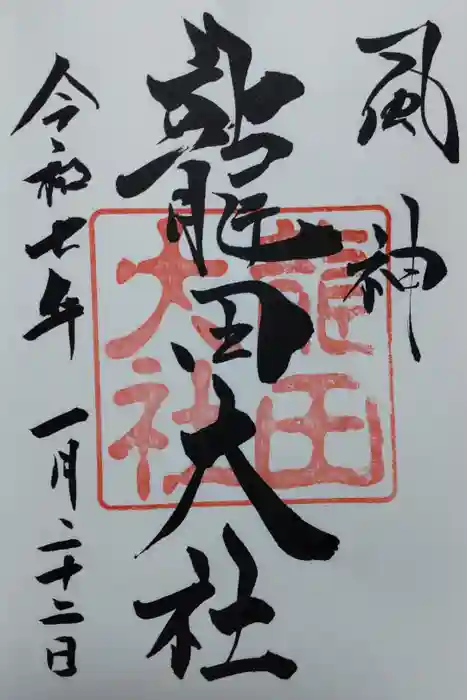 風神
龍田大社
龍田
大社
令和七年 一月二十二日